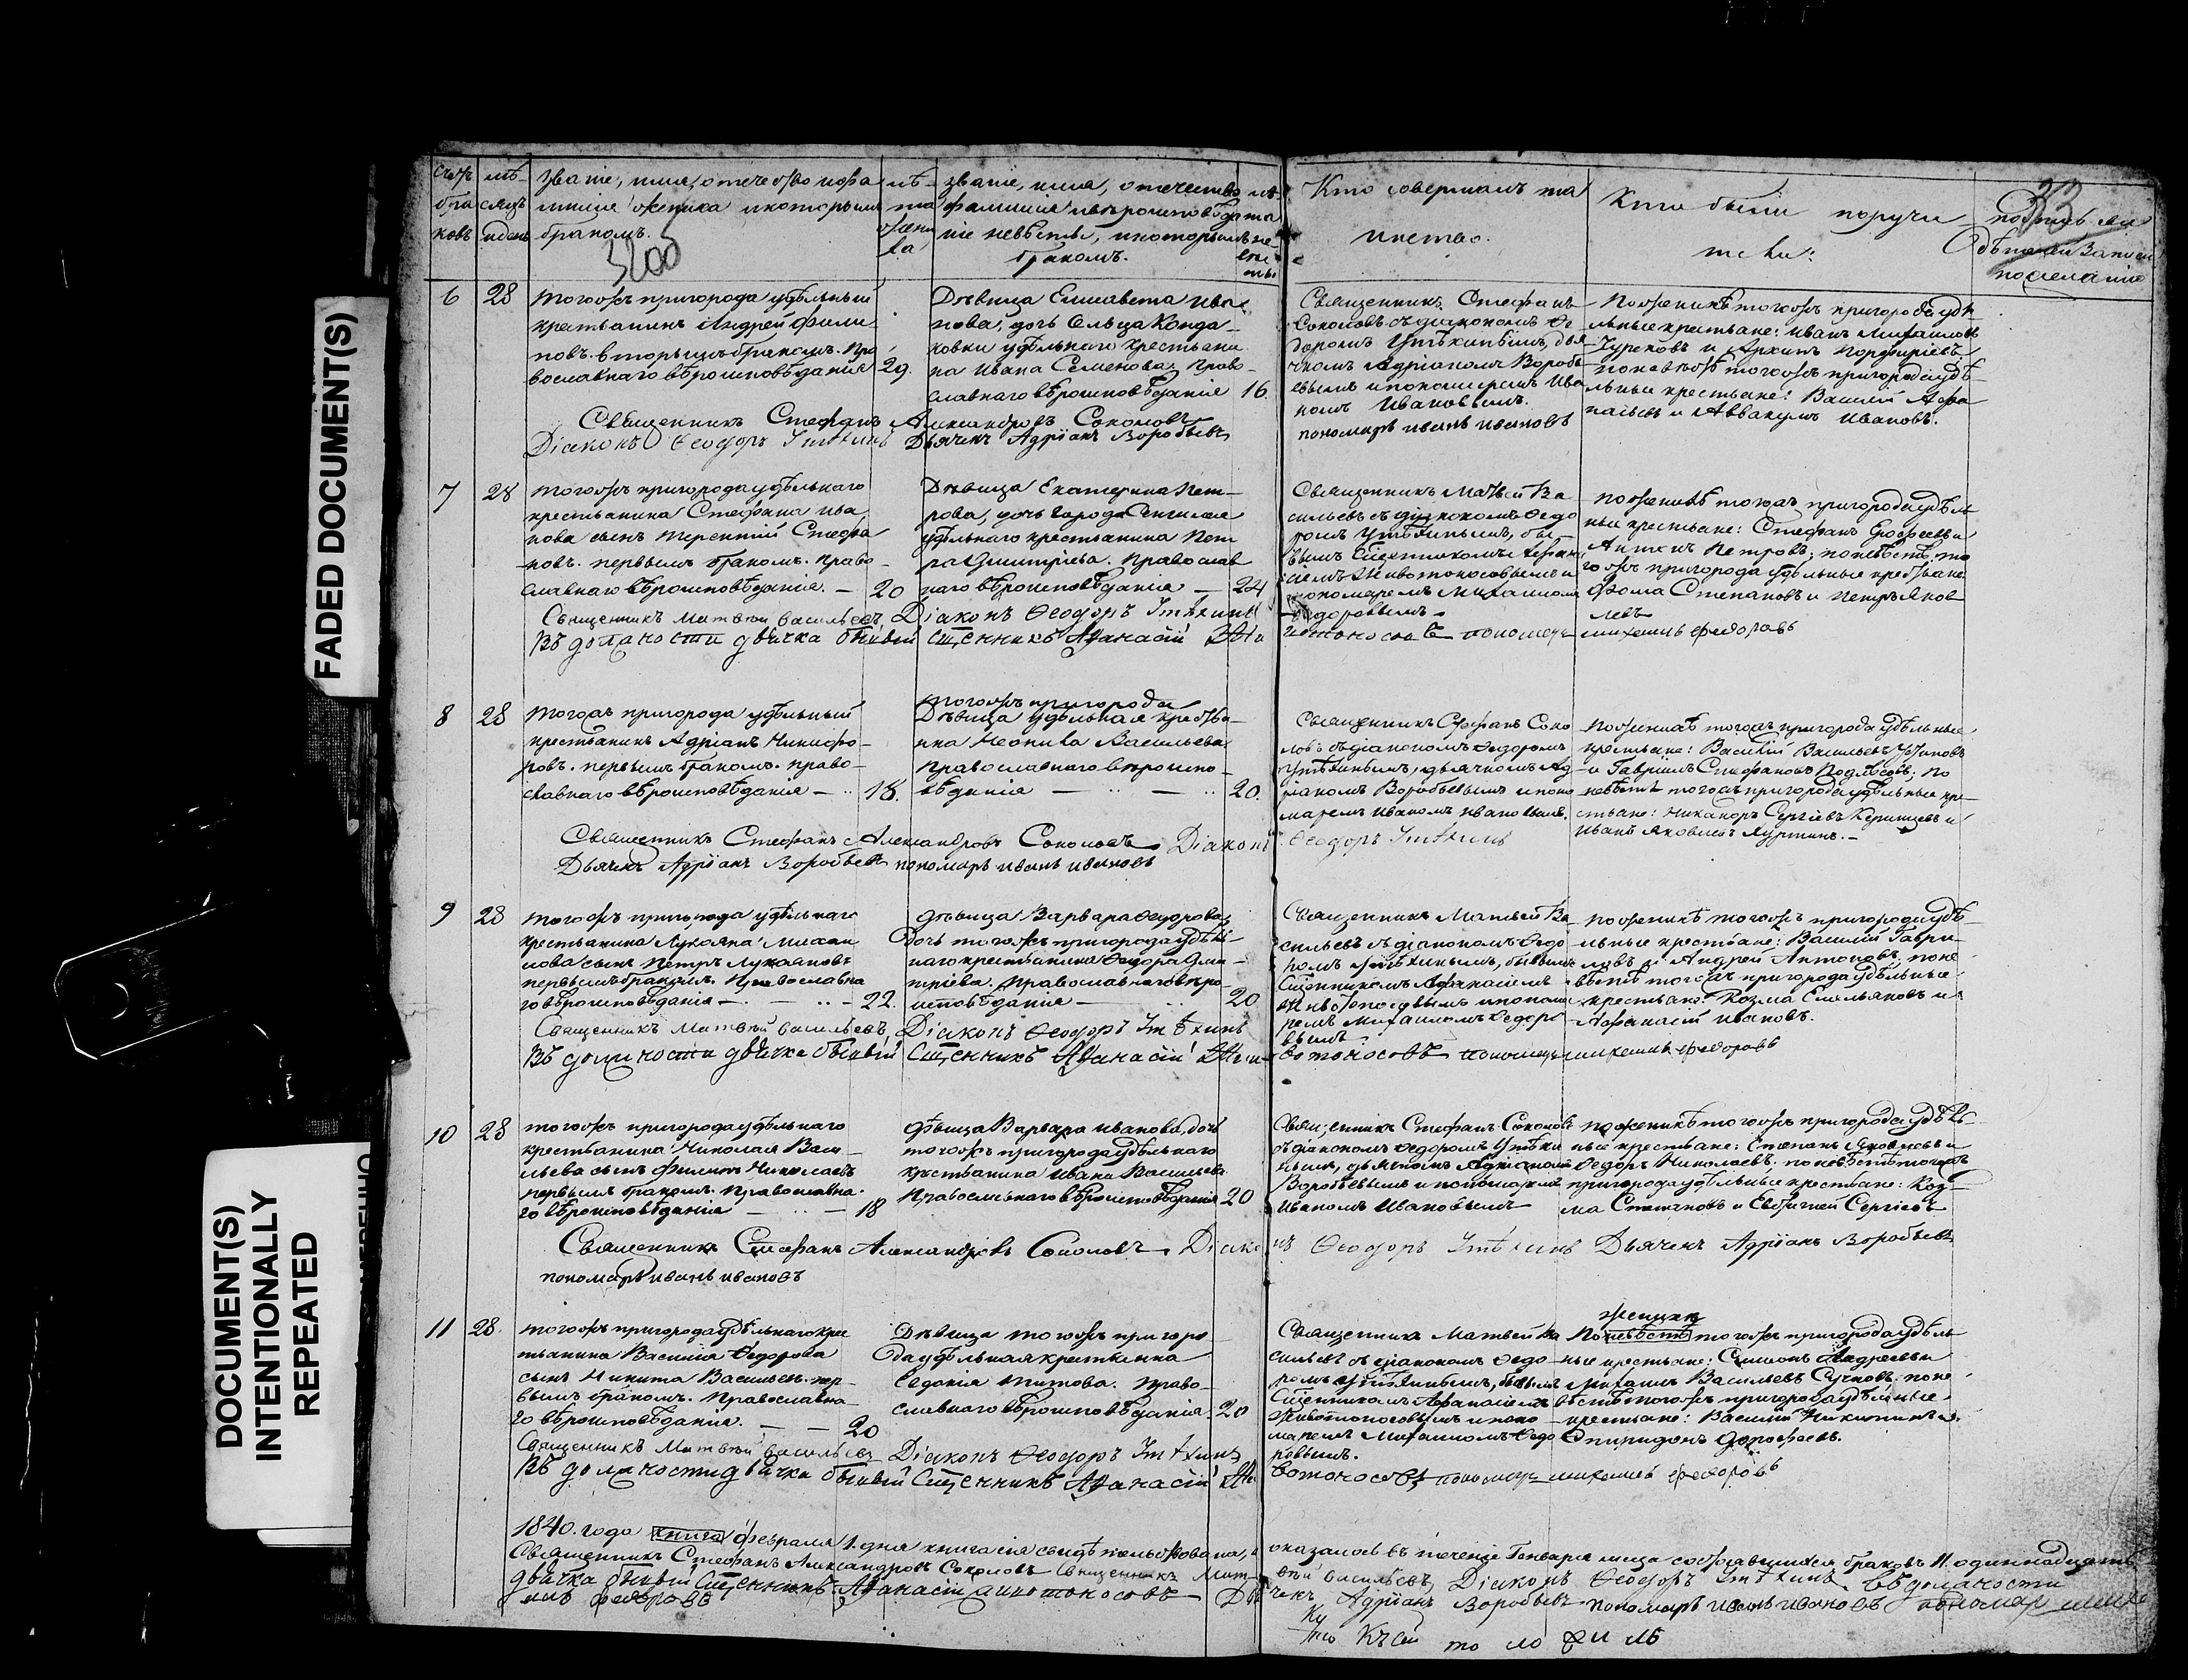 FADED DOCUMENT(S)
DOCUMENT(S)
INTENTIONALLY
REPEATED
Званіе, имя, отечество и фа
милія жениха и которымъ
бракомъ.
3200
лѣ
та
жени
ха
званіе, имя, отечество
фамилія и вѣроисповѣда
ніе невѣсты, и которымъ
бракомъ.
Кто совершалъ та
инство.
Кто были поручи
тели:
33
6 28
тогожъ пригорода удѣльный
крестьянинъ Андрей Фили
повъ. вторымъ бракомъ. Пра
вославнаго вѣроисповѣданія 29.
Дѣвица Елисавета Ива
нова, дочь Сельца Конда
ковки удѣльнаго крестьяни
на Ивана Семенова, право
славнаго вѣроисповѣданія 16.
Священникъ Стефанъ
Соколовъ съ діакономъ Ѳе
доромъ Утѣхинымъ, дья
чкомъ Адріаномъ Воробь
евымъ и пономаремъ Ива
номъ Ивановымъ.
пономарь иванъ ивановъ
По женихѣ тогожъ пригорода удѣ
льные крестьяне: Иванъ Михайловъ
и Архипъ Порфиріевъ
по невѣстѣ тогожъ пригорода удѣ
льные крестьяне: Василій Афа
насьевъ и Аввакумъ Ивановъ.
Священникъ Стефанъ Александровъ Соколовъ
Діаконъ Ѳеодоръ Утѣхинъ Дьячекъ Адріанъ Воробьевъ
7 28
тогожъ пригорода удѣльнаго
крестьянина Стефана Ива
нова сынъ Терентій Стефа
новъ. первымъ бракомъ. Право
славнаго вѣроисповѣданія. — 20
Дѣвица Екатерина Пет
рова, дочь города Сенгилея
удѣльнаго крестьянина Пет
ра Дмитріева. Православ
наго вѣроисповѣданія — 24
Священникъ Матвей Ва
сильевъ съ діакономъ Ѳедо
ромъ Утѣхинымъ, бы
вымъ Сщенникомъ Афана
сіемъ Животоносовымъ и
пономаремъ Михаиломъ
Ѳедоровымъ.
По женихѣ тогожъ пригорода удѣль
ные крестьяне: Стефанъ Ерофеевъ и
Антипъ Петровъ; по невѣстѣ то
гожъ пригорода удѣльные крестьяне
Фома Степановъ и Петръ Яков
левъ
Священникъ Матвѣй Васильевъ, Діаконъ Ѳеодоръ Утѣхинъ
Въ должности дьячка бывый Сщенникъ Аѳанасій Жи
вотоносовъ пономарь михаилъ федоровъ
8 28
тогожъ пригорода удѣльный
крестьянинъ Адріанъ Никифо
ровъ. первымъ бракомъ. право
славнаго вѣроисповѣданія — 18.
тогожъ пригорода
Дѣвица удѣльная крестья
нка Неонила Васильева
Православнаго вѣроиспо
вѣданія — 20.
Священникъ Стефанъ Соко
ловъ съ діакономъ Ѳедоромъ
Утѣхинымъ, дьячкомъ Ад
ріаномъ Воробьевымъ и поно
маремъ Иваномъ Ивановымъ.
По женихѣ тогожъ пригорода удѣльные
крестьяне: Василій Васильевъ
и Гавріилъ Стефановъ Подлѣсовъ; по
невѣстѣ тогожъ пригорода удѣльные кре
стьяне: Никаноръ Сергіевъ и
Иванъ Яковлевъ
Священникъ Стефанъ Александровъ Соколовъ Діаконъ Ѳеодоръ Утѣхинъ
Дьячекъ Адріанъ Воробьевъ пономарь иванъ ивановъ
9 28
тогожъ пригорода удѣльнаго
крестьянина Лукояна Михаи
лова сынъ Петръ Лукояновъ
первымъ бракомъ. Православна
го вѣроисповѣданія — 22.
Дѣвица Варвара Ѳедорова,
дочь тогожъ пригорода удѣль
наго крестьянина Ѳедора Дми
тріева. Православнаго вѣро
исповѣданія — 20
Священникъ Матвей Ва
сильевъ съ діакономъ Ѳедо
ромъ Утѣхинымъ, бывымъ
Сщенникомъ Афанасіемъ
Животоносовымъ и понома
ремъ Михаиломъ Ѳедоро
вымъ
По женихѣ тогожъ пригорода удѣ
льные крестьяне: Василій Гаври
ловъ и Андрей Антоновъ, по не
вѣстѣ тогожъ пригорода удѣльные
крестьяне: Козма Емельяновъ и
Афанасій Ивановъ.
Священникъ Матвѣй Васильевъ Діаконъ Ѳеодоръ Утѣхинъ
Въ должности дьячка бывый Сщенникъ Аѳанасій Жи
вотоносовъ пономарь михаилъ федоровъ
10 28
тогожъ пригорода удѣльнаго
крестьянина Николая Васи
льева сынъ Филипъ Николаевъ
первымъ бракомъ. Православна
го вѣроисповѣданія — 18
Дѣвица Варвара Иванова, дочь
тогожъ пригорода удѣльнаго
крестьянина Ивана Васильева
Православнаго вѣроисповѣданія 20
Священникъ Стефанъ Соколовъ
съ діакономъ Ѳедоромъ Утѣхи
нымъ, дьячкомъ Адріаномъ
Воробьевымъ и пономаремъ
Иваномъ Ивановымъ
По женихѣ тогожъ пригорода удѣль
ные крестьяне: Степанъ Яковлевъ и
Ѳедоръ Николаевъ. по невѣстѣ тогожъ
пригорода удѣльные крестьяне: Коз
ма Степановъ и Евстигней Сергіевъ
Священникъ Стефанъ Александровъ Соколовъ Діаконъ Ѳеодоръ Утѣхинъ Дьячекъ Адріанъ Воробьевъ
пономарь иванъ ивановъ
11 28.
тогожъ пригорода удѣльнаго крес
тьянина Василія Ѳедорова
сынъ Никита Васильевъ. пер
вымъ бракомъ. Православна
го вѣроисповѣданія. — 20
Дѣвица тогожъ пригоро
да удѣльная крестьянка
Евдокія Титова. Право
славнаго вѣроисповѣданія. 20
Священникъ Матвей Ва
сильевъ съ діакономъ Ѳедо
ромъ Утѣхинымъ, бывымъ
Сщенникомъ Афанасіемъ
Животоносовымъ и поно
маремъ Михаиломъ Ѳедо
ровымъ.
женихѣ
По невѣстѣ тогожъ пригорода удѣль
ные крестьяне: Симеонъ Андреевъ и
Михаилъ Васильевъ Сучковъ. по не
вѣстѣ тогожъ пригорода удѣльные
крестьяне: Василій Никитинъ и
Спиридонъ Дорофеевъ.
Священникъ Матвѣй Васильевъ Діаконъ Ѳеодоръ Утѣхинъ
Въ должности дьячка бывый Сщенникъ Аѳанасій Жи
вотоносовъ пономарь михаилъ федоровъ
1840. года книга февраля 1. дня книга сія свидѣтельствована, и оказалось въ теченіе Генваря мца сочетавшихся браковъ 11. одиннадцать
Священникъ Стефанъ Александровъ Соколовъ Священникъ Матвѣй Васильевъ, Діаконъ Ѳеодоръ Утѣхинъ. въ должности
дьячка бывый Сщенникъ Аѳанасій Животоносовъ Дьячекъ Адріанъ Воробьевъ пономарь иванъ ивановъ пономарь миха
илъ федоровъ